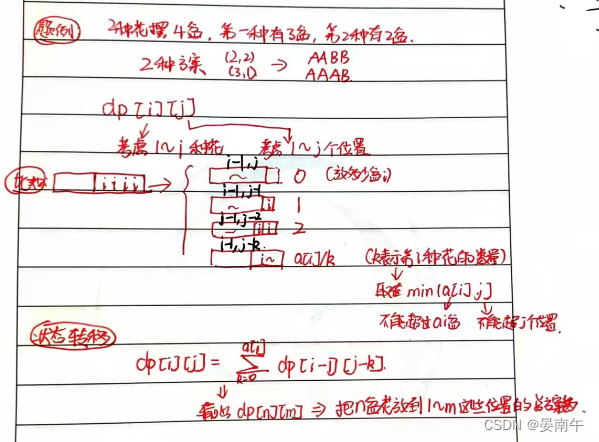 题例 2种花摆4盆, 第一种有3盆, 第2种有2盆.
2种方案 (2,2) → AABB
(3,1) AAAB.
dp[i][j]
考虑 1~j 种花 考虑 1~j 个位置
i-1,j
i i i i → ~ 0 (放多少盆i)
i-1,j-1
~ i 1
i-1,j-2
~ i i 2
i-1,j-k
i~ a[i]/k (k表示第i种花的数量)
取值 min(a[i],j)
不能超过ai盆 不能超j个位置.
状态转移
dp[i][j] = a[i] ∑ k=0 dp[i-1][j-k].
输出 dp[n][m] ⇒ 把n盆花放到1~m这些位置的总方案
CSDN @晏南午